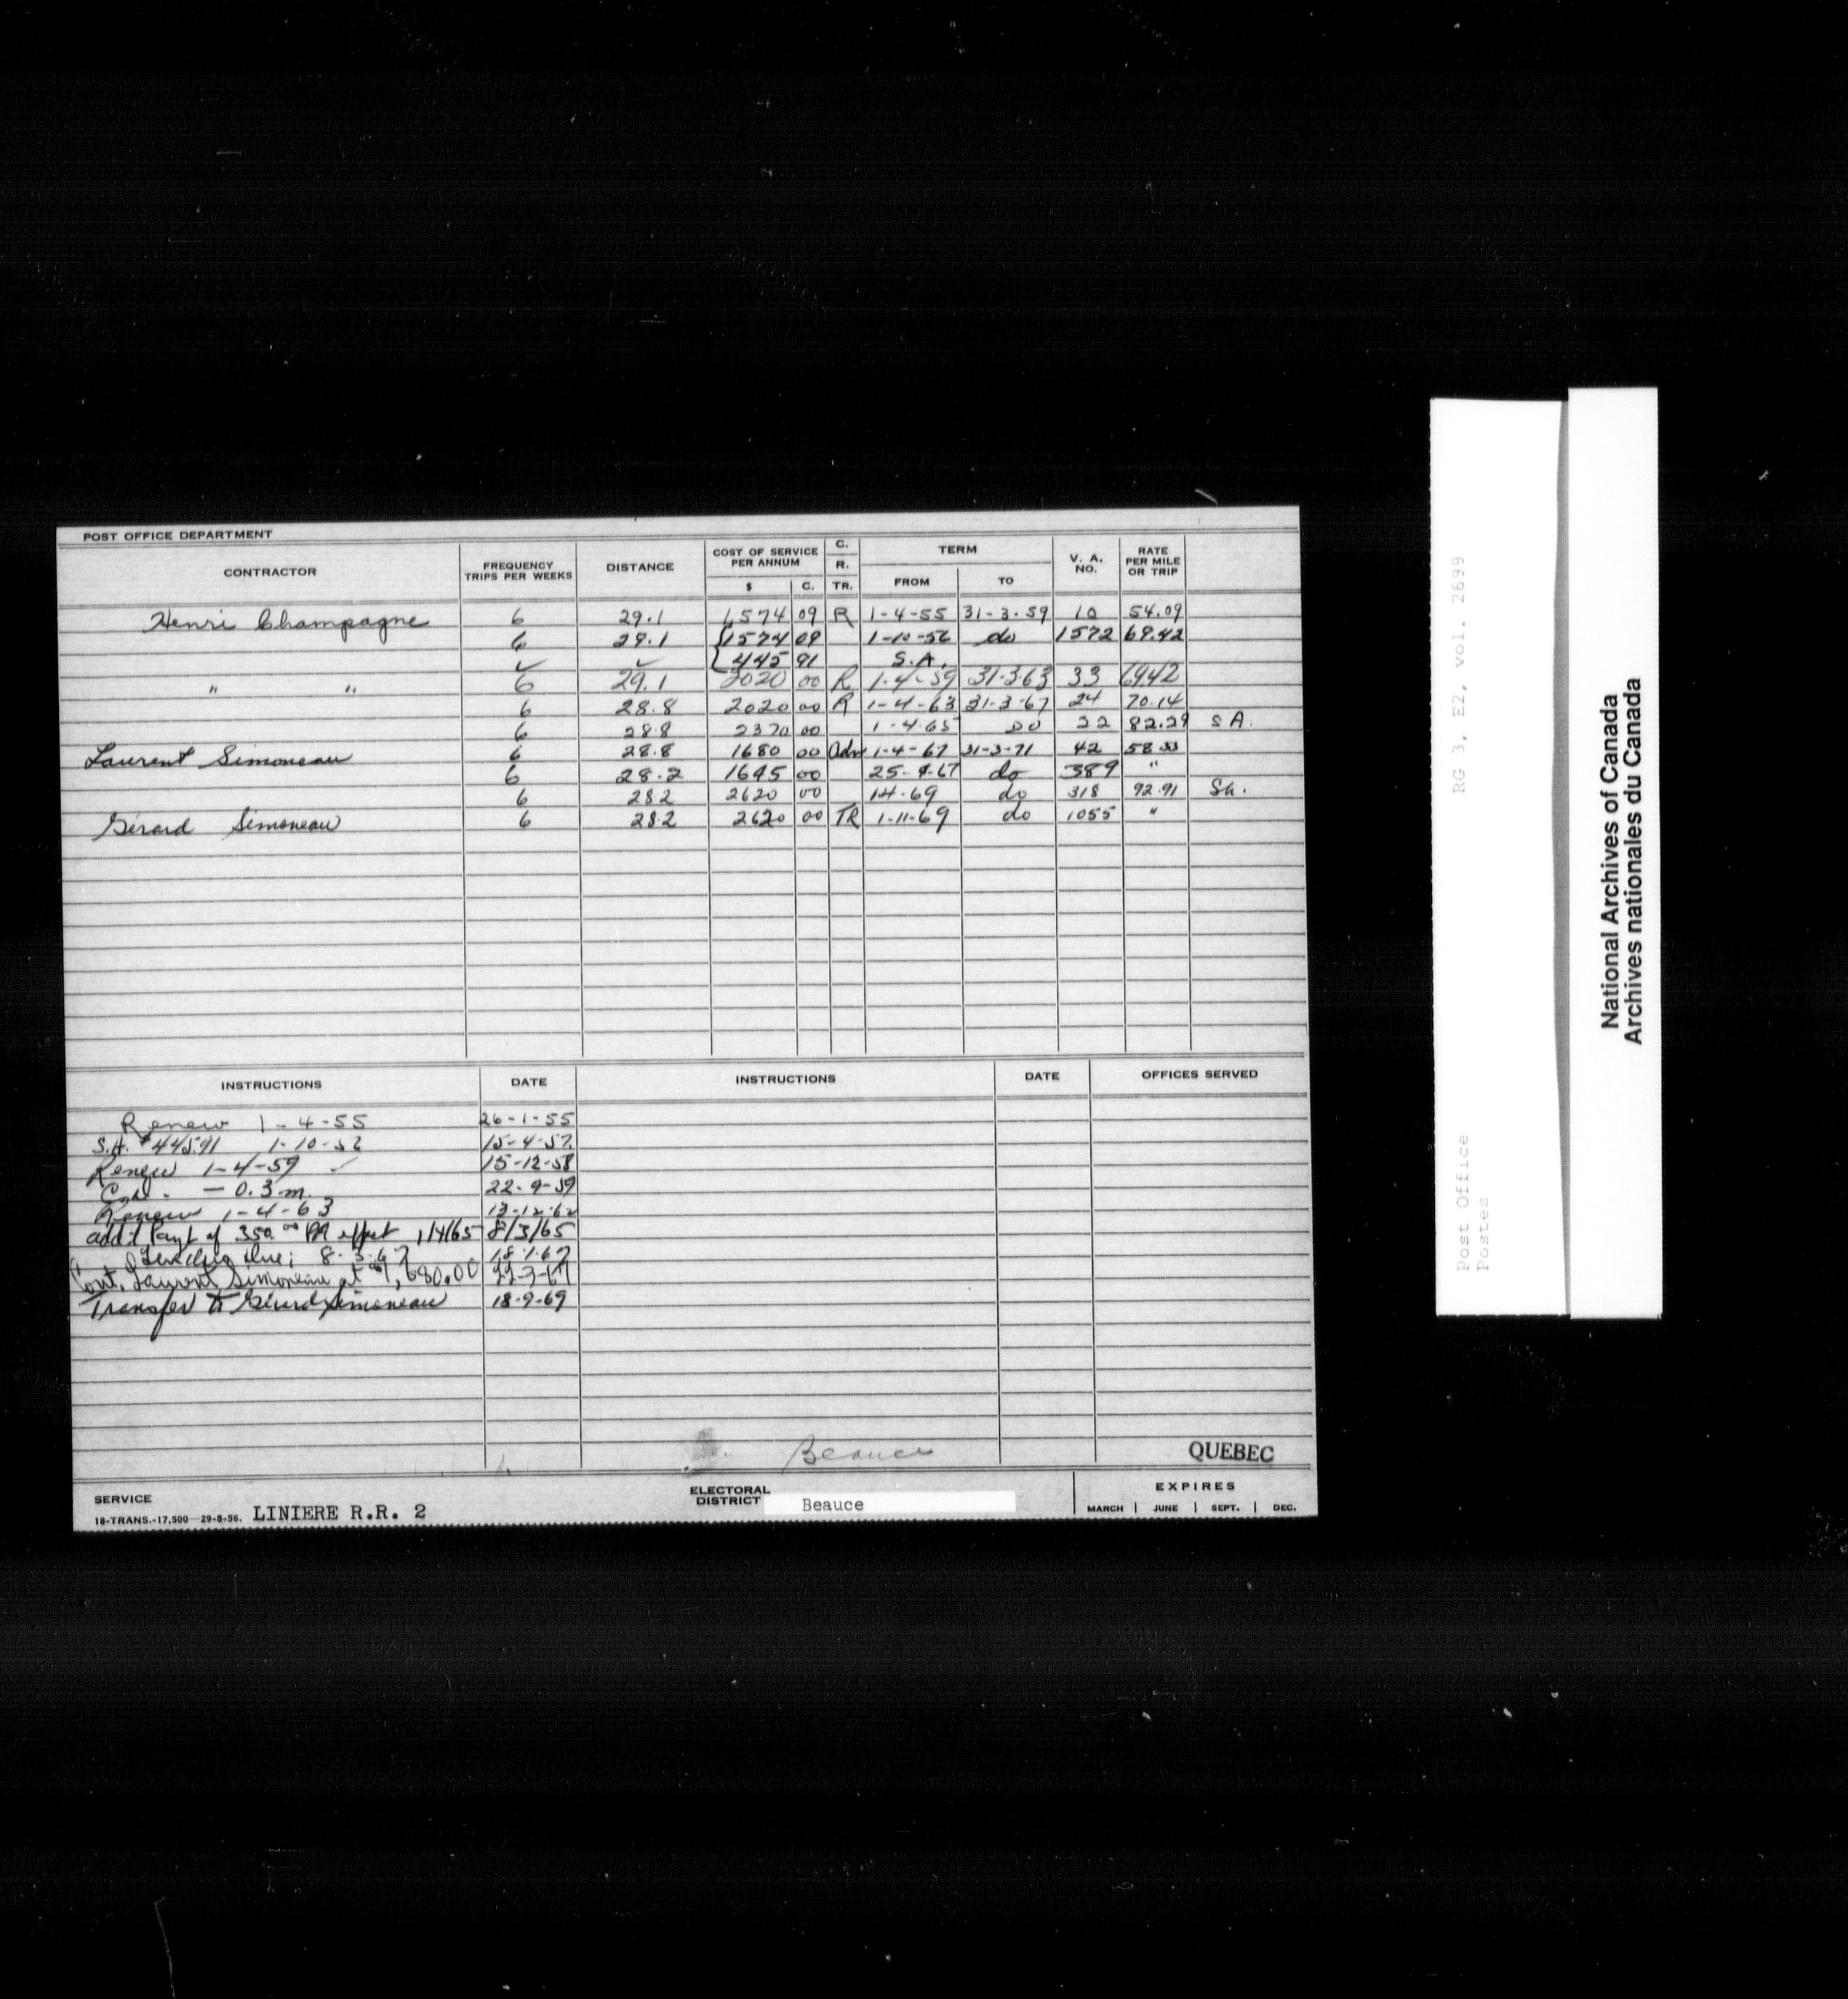 POST OFFICE DEPARTMENT
CONTRACTOR FREQUENCY TRIPS PER WEEKS DISTANCE COST OF SERVICE PER ANNUM $ C. C. R. TR. TERM FROM TO V. A. NO. RATE PER MILE OR TRIP
Henri Champagne 6 29.1 1,574 09 R 1-4-55 31-3-59 10 54.09
6 29.1 1574 09 1-10-56 do 1572 69.42
✓ ✓ 445 91 S.A.
" " 6 29.1 2020 00 R 1-4-59 31-3-63 33 69.42
6 28.8 2020 00 R 1-4-63 31-3-67 24 70.14
6 28.8 2370 00 1-4-65 DO 22 82.29 S A.
Laurent Simoneau 6 28.8 1680 00 Adv 1-4-67 31-3-71 42 58.33
6 28.2 1645 00 25-4-67 do 389 "
6 28.2 2620 00 1-4-69 do 318 92.91 Sa.
Gérard Simoneau 6 28.2 2620 00 TR 1-11-69 do 1055 "
INSTRUCTIONS DATE INSTRUCTIONS DATE OFFICES SERVED
Renew 1-4-55 26-1-55
S.A. $445.91 1-10-56 15-4-57
Renew 1-4-59 ✓ 15-12-58
- 0.3 m. 22-9-59
Renew 1-4-63 13-12-62
add'l Payt of 350.00 PA effect 1/4/65 8/3/65
Tender due; 8-3-67 18-1-67
Cont. Laurent Simoneau at $1,680.00 22-3-67
Transfer to Gérard Simoneau 18-9-69
Beauce
QUEBEC
SERVICE LINIERE R.R. 2
18-TRANS.-17,500-29-8-56.
ELECTORAL DISTRICT Beauce
EXPIRES
MARCH | JUNE | SEPT. | DEC.
RG 3, E2, vol. 2699
Post Office
Postes
National Archives of Canada
Archives nationales du Canada